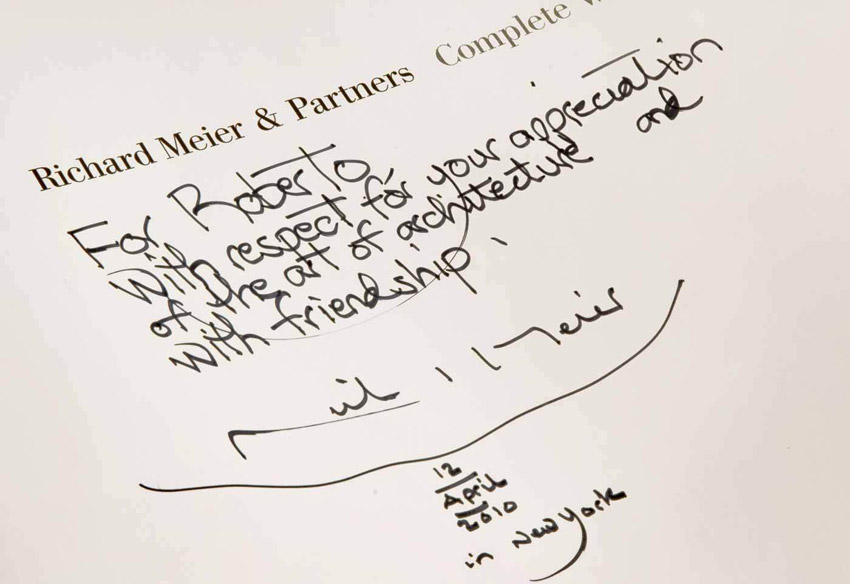 Richard Meier & Partners Complete
For Roberto
With respect for your appreciation
of the art of architecture and
with friendship.
Meier
12
April
2010
in New York